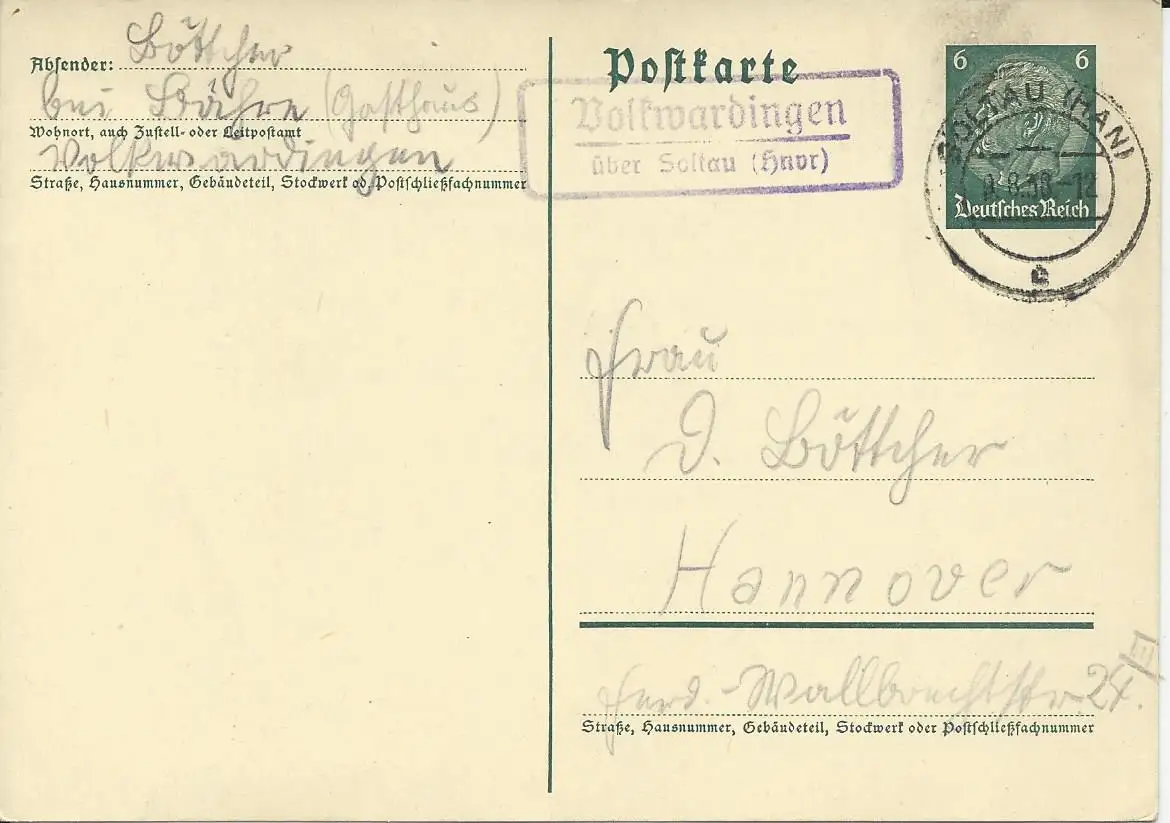 Absender: Böttcher
bei Bähre (Gasthaus)
Wohnort, auch Zustell- oder Leitpostamt
Volkwardingen
Straße, Hausnummer, Gebäudeteil, Stockwerk od. Postschließfachnummer
Postkarte
Volkwardingen
über Soltau (Hnvr)
6 6
SOLTAU (HAN)
8.38.-12
Deutsches Reich
c
Frau
D. Böttcher
Hannover
Ferd.-Wallbrechtstr. 24/III.
Straße, Hausnummer, Gebäudeteil, Stockwerk oder Postschließfachnummer